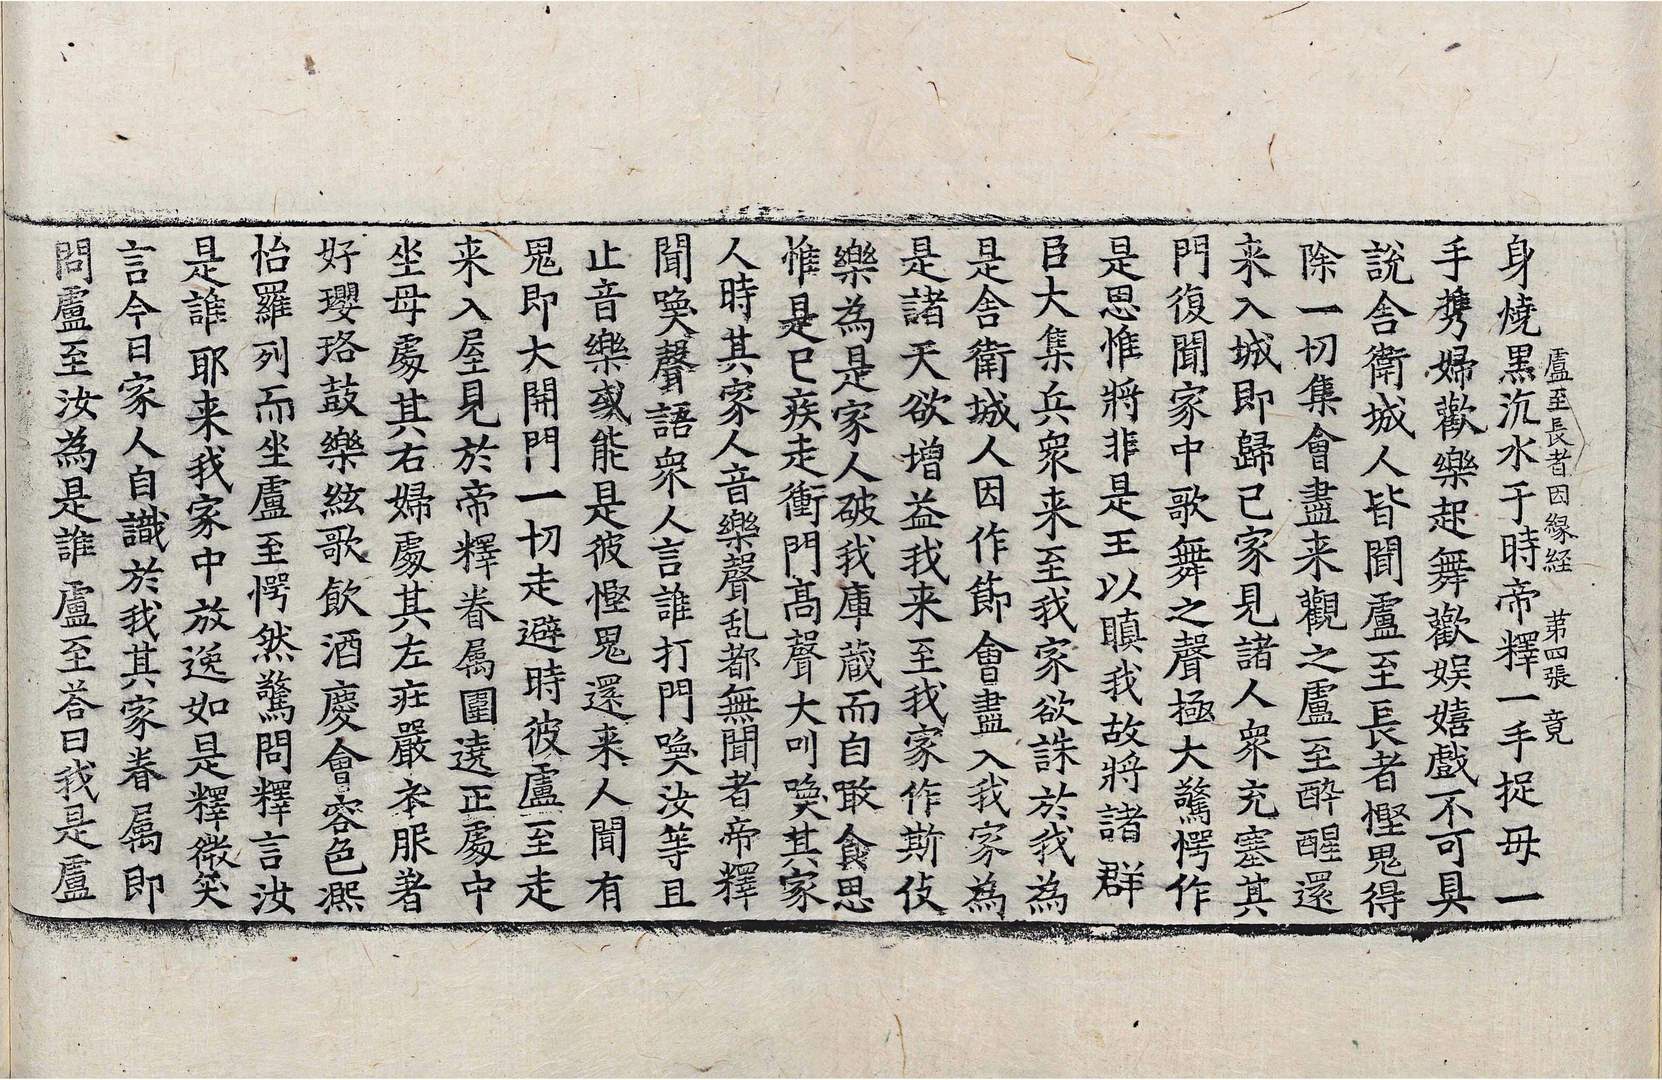 盧至長者因緣経　苐四張　竟
身燒黒沉水于時帝釋一手捉母一
手携婦歡樂起舞歡娱嬉戲不可具
説舎衛城人皆聞盧至長者慳鬼得
除一切集會盡来觀之盧至酔醒還
来入城即歸己家見諸人衆充塞其
門復聞家中歌舞之聲極大驚愕作
是思惟將非是王以瞋我故將諸群
臣大集兵衆来至我家欲誅於我為
是舎衛城人因作節會盡入我家為
是諸天欲增益我来至我家作斯伎
樂為是家人破我庫蔵而自噉食思
惟是已疾走衝門髙聲大叫喚其家
人時其家人音樂聲乱都無聞者帝釋
聞喚聲語衆人言誰打門喚汝等且
止音樂或能是彼慳鬼還来人聞有
鬼即大開門一切走避時彼盧至走
来入屋見於帝釋眷属圍遶正處中
坐母處其右婦處其左莊嚴衣服著
好瓔珞鼓樂絃歌飲酒慶會容色熈
怡羅列而坐盧至愕然驚問釋言汝
是誰耶来我家中放逸如是釋微笑
言今日家人自識於我其家眷属即
問盧至汝為是誰盧至荅曰我是盧